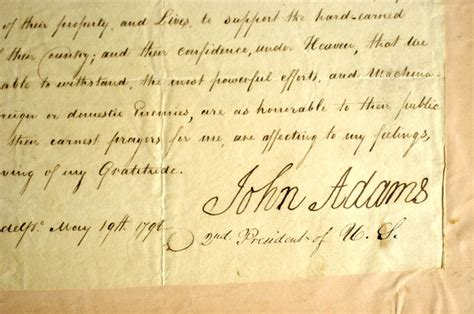 of their property, and Lives, to support the hard-earned
of their Country; and their confidence, under Heaven, that we
able to withstand, the most powerful efforts, and Machina-
reign or domestic Enemies, are as honorable to their public
their earnest prayers for me, are affecting to my feelings,
ving of my Gratitude.
John Adams
delpa. May 19th. 179
2nd. President of U. S.